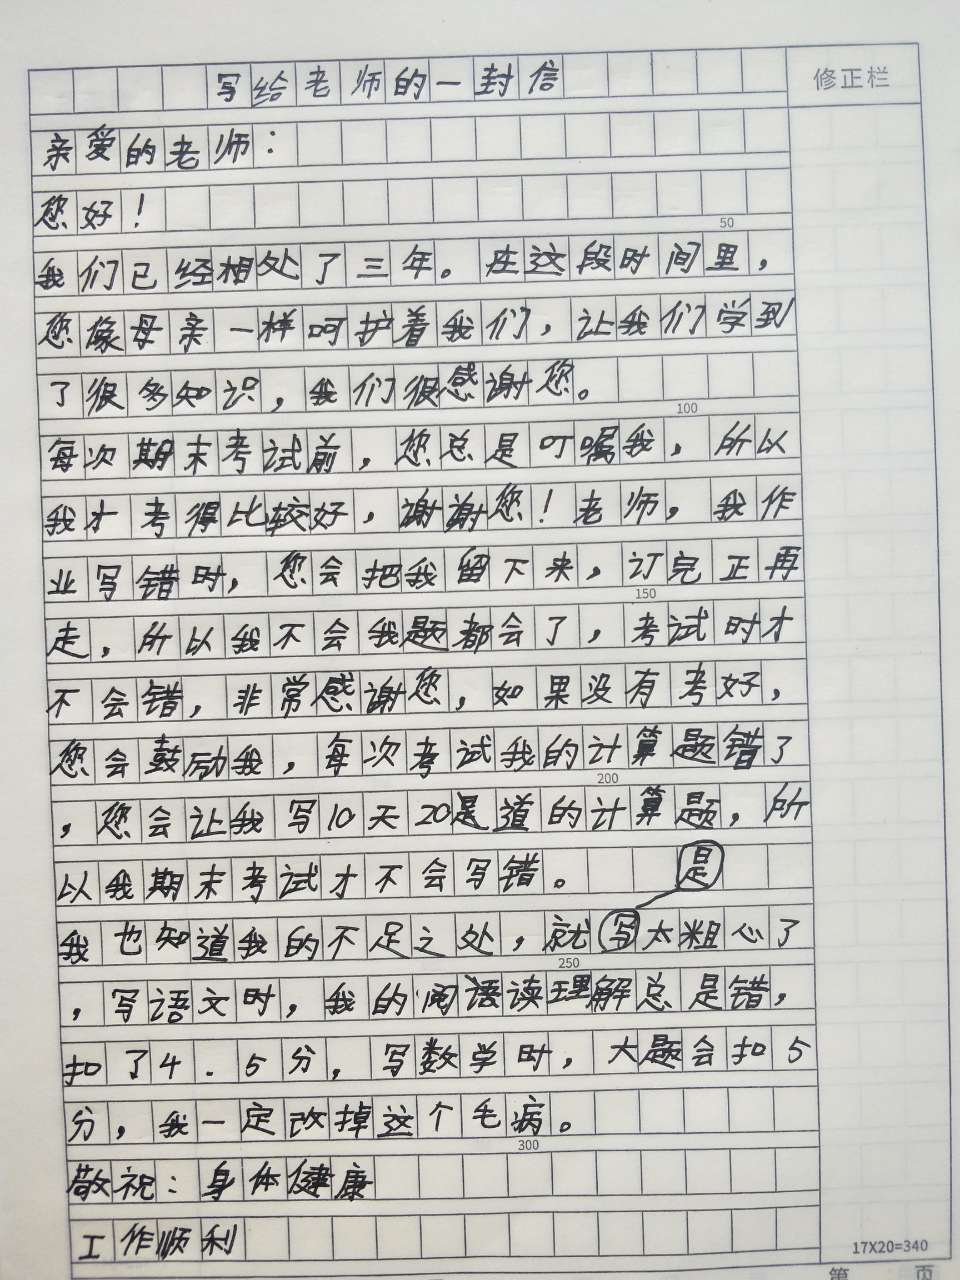 写给老师的一封信
修正栏
亲爱的老师：
您好！
50
我们已经相处了三年。在这段时间里，
您像母亲一样呵护着我们，让我们学到
了很多知识，我们很感谢您。
100
每次期末考试前，您总是叮嘱我，所以
我才考得比较好，谢谢您！老师，我作
业写错时，您会把我留下来，订完正再
150
走，所以我不会我题都会了，考试时才
不会错，非常感谢您，如果没有考好，
您会鼓励我，每次考试我的计算题错了
200
，您会让我写10天20是道的计算题，所
以我期末考试才不会写错。
是
我也知道我的不足之处，就写太粗心了
250
，写语文时，我的阅语读理解总是错，
扣了4.5分，写数学时，大题会扣5
分，我一定改掉这个毛病。
300
敬祝：身体健康
工作顺利
17X20=340
第 页